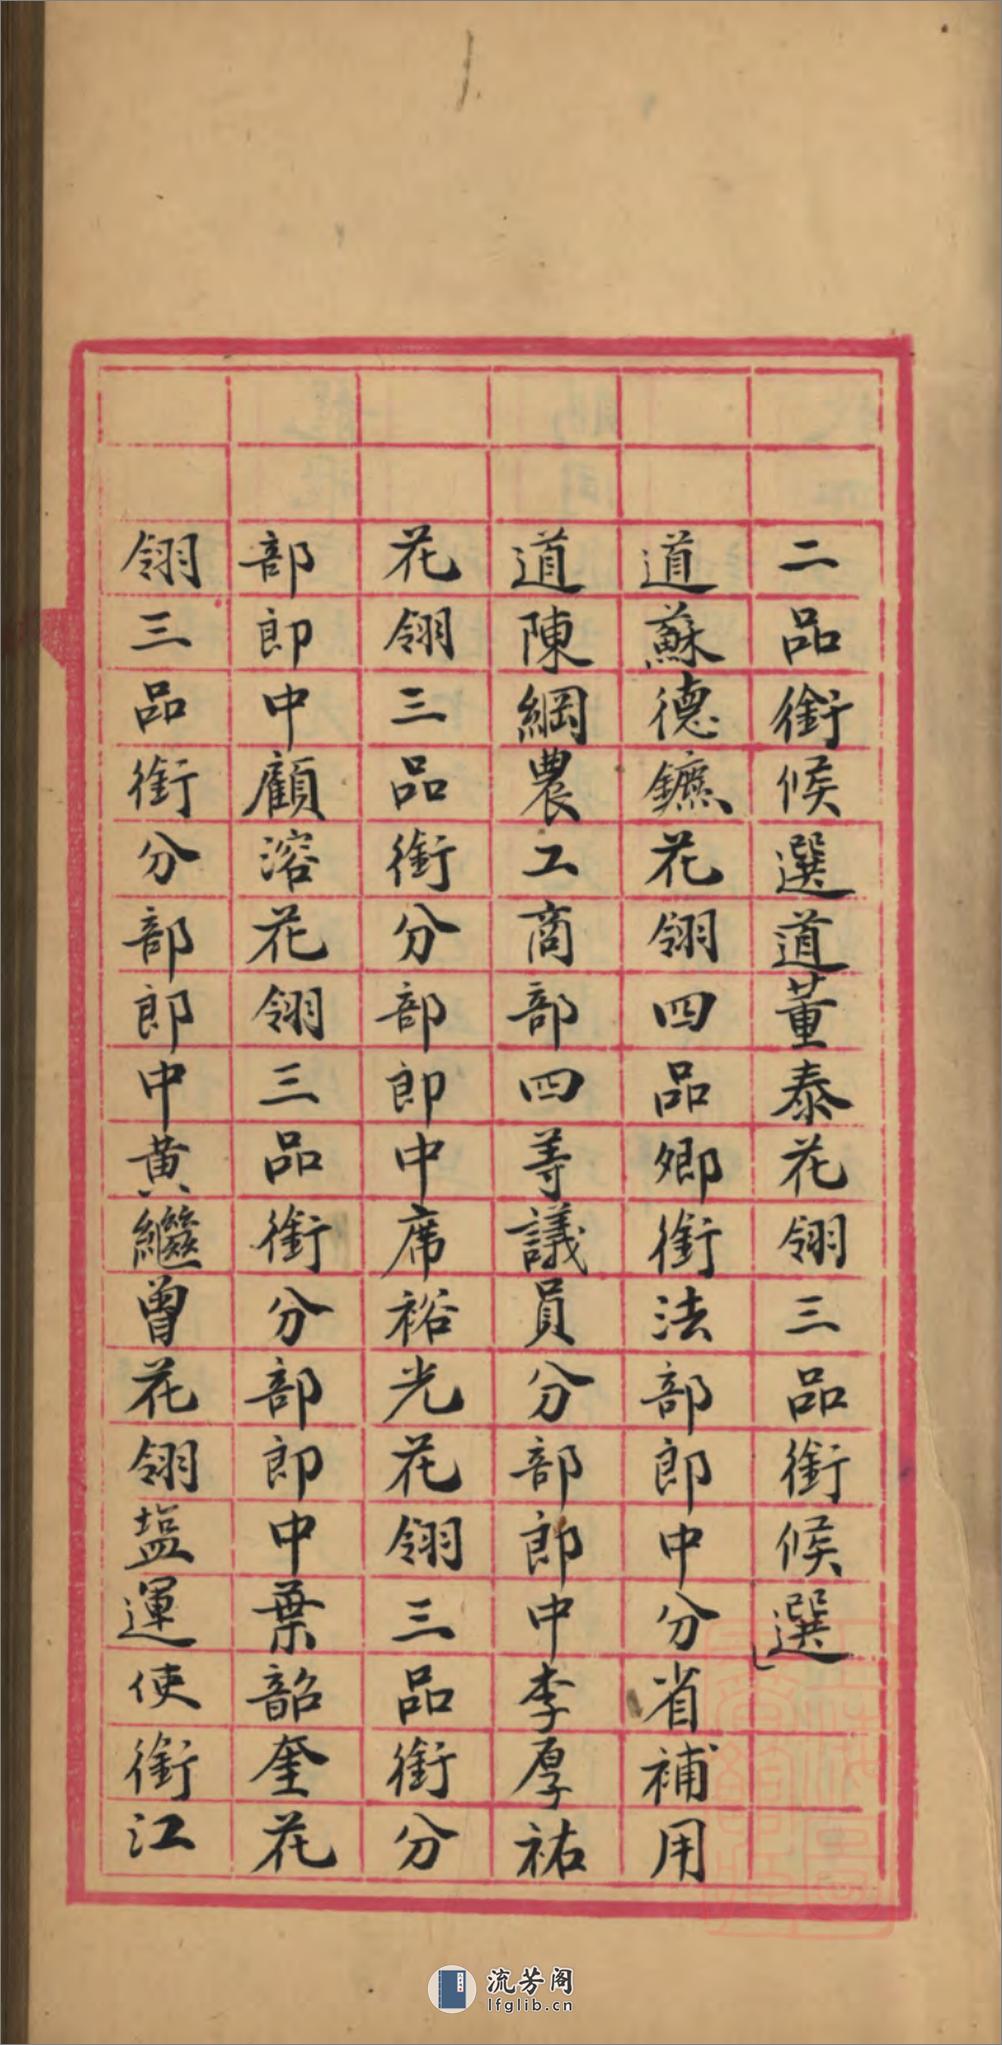 二品銜候選道董泰花翎三品銜候選
道蘇德鑣花翎四品卿銜法部郎中分省補用
道陳綱農工商部四等議員分部郎中李厚祐
花翎三品銜分部郎中席裕光花翎三品銜分
部郎中顧溶花翎三品銜分部郎中葉韶奎花
翎三品銜分部郎中黃繼曾花翎塩運使銜江
流芳阁
lfglib.cn